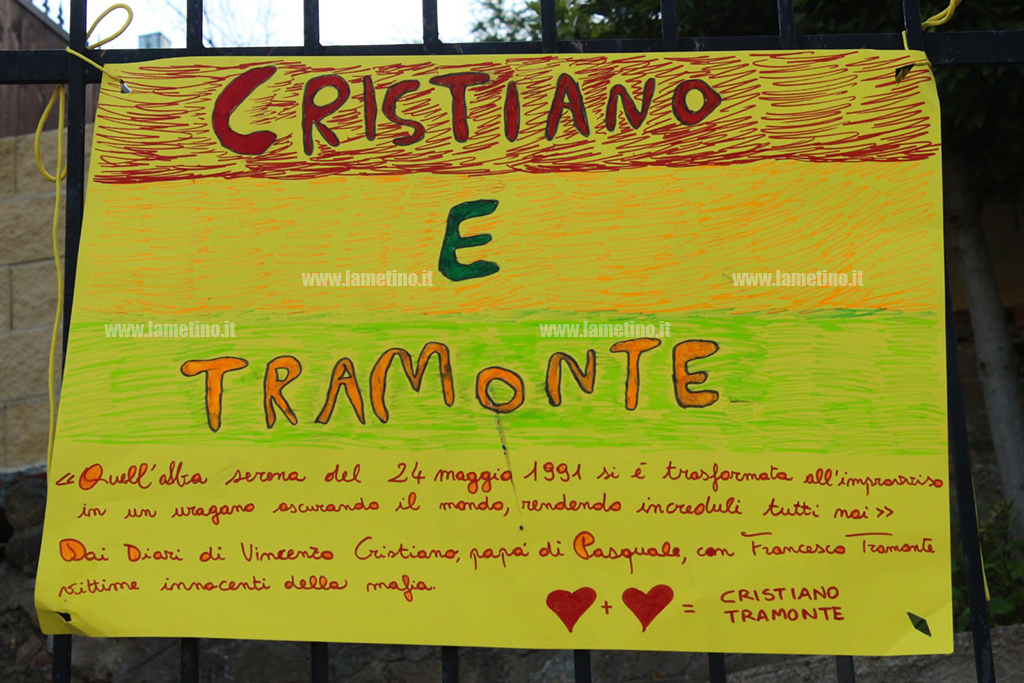 CRISTIANO
E
www.lametino.it www.lametino.it
www.lametino.it www.lametino.it
TRAMONTE
«Quell'alba serena del 24 maggio 1991 si è trasformata all'improvviso
in un uragano oscurando il mondo, rendendo increduli tutti noi»
Dai Diari di Vincenzo Cristiano, papá di Pasquale, con Francesco Tramonte
vittime innocenti della mafia.
+ = CRISTIANO
TRAMONTE